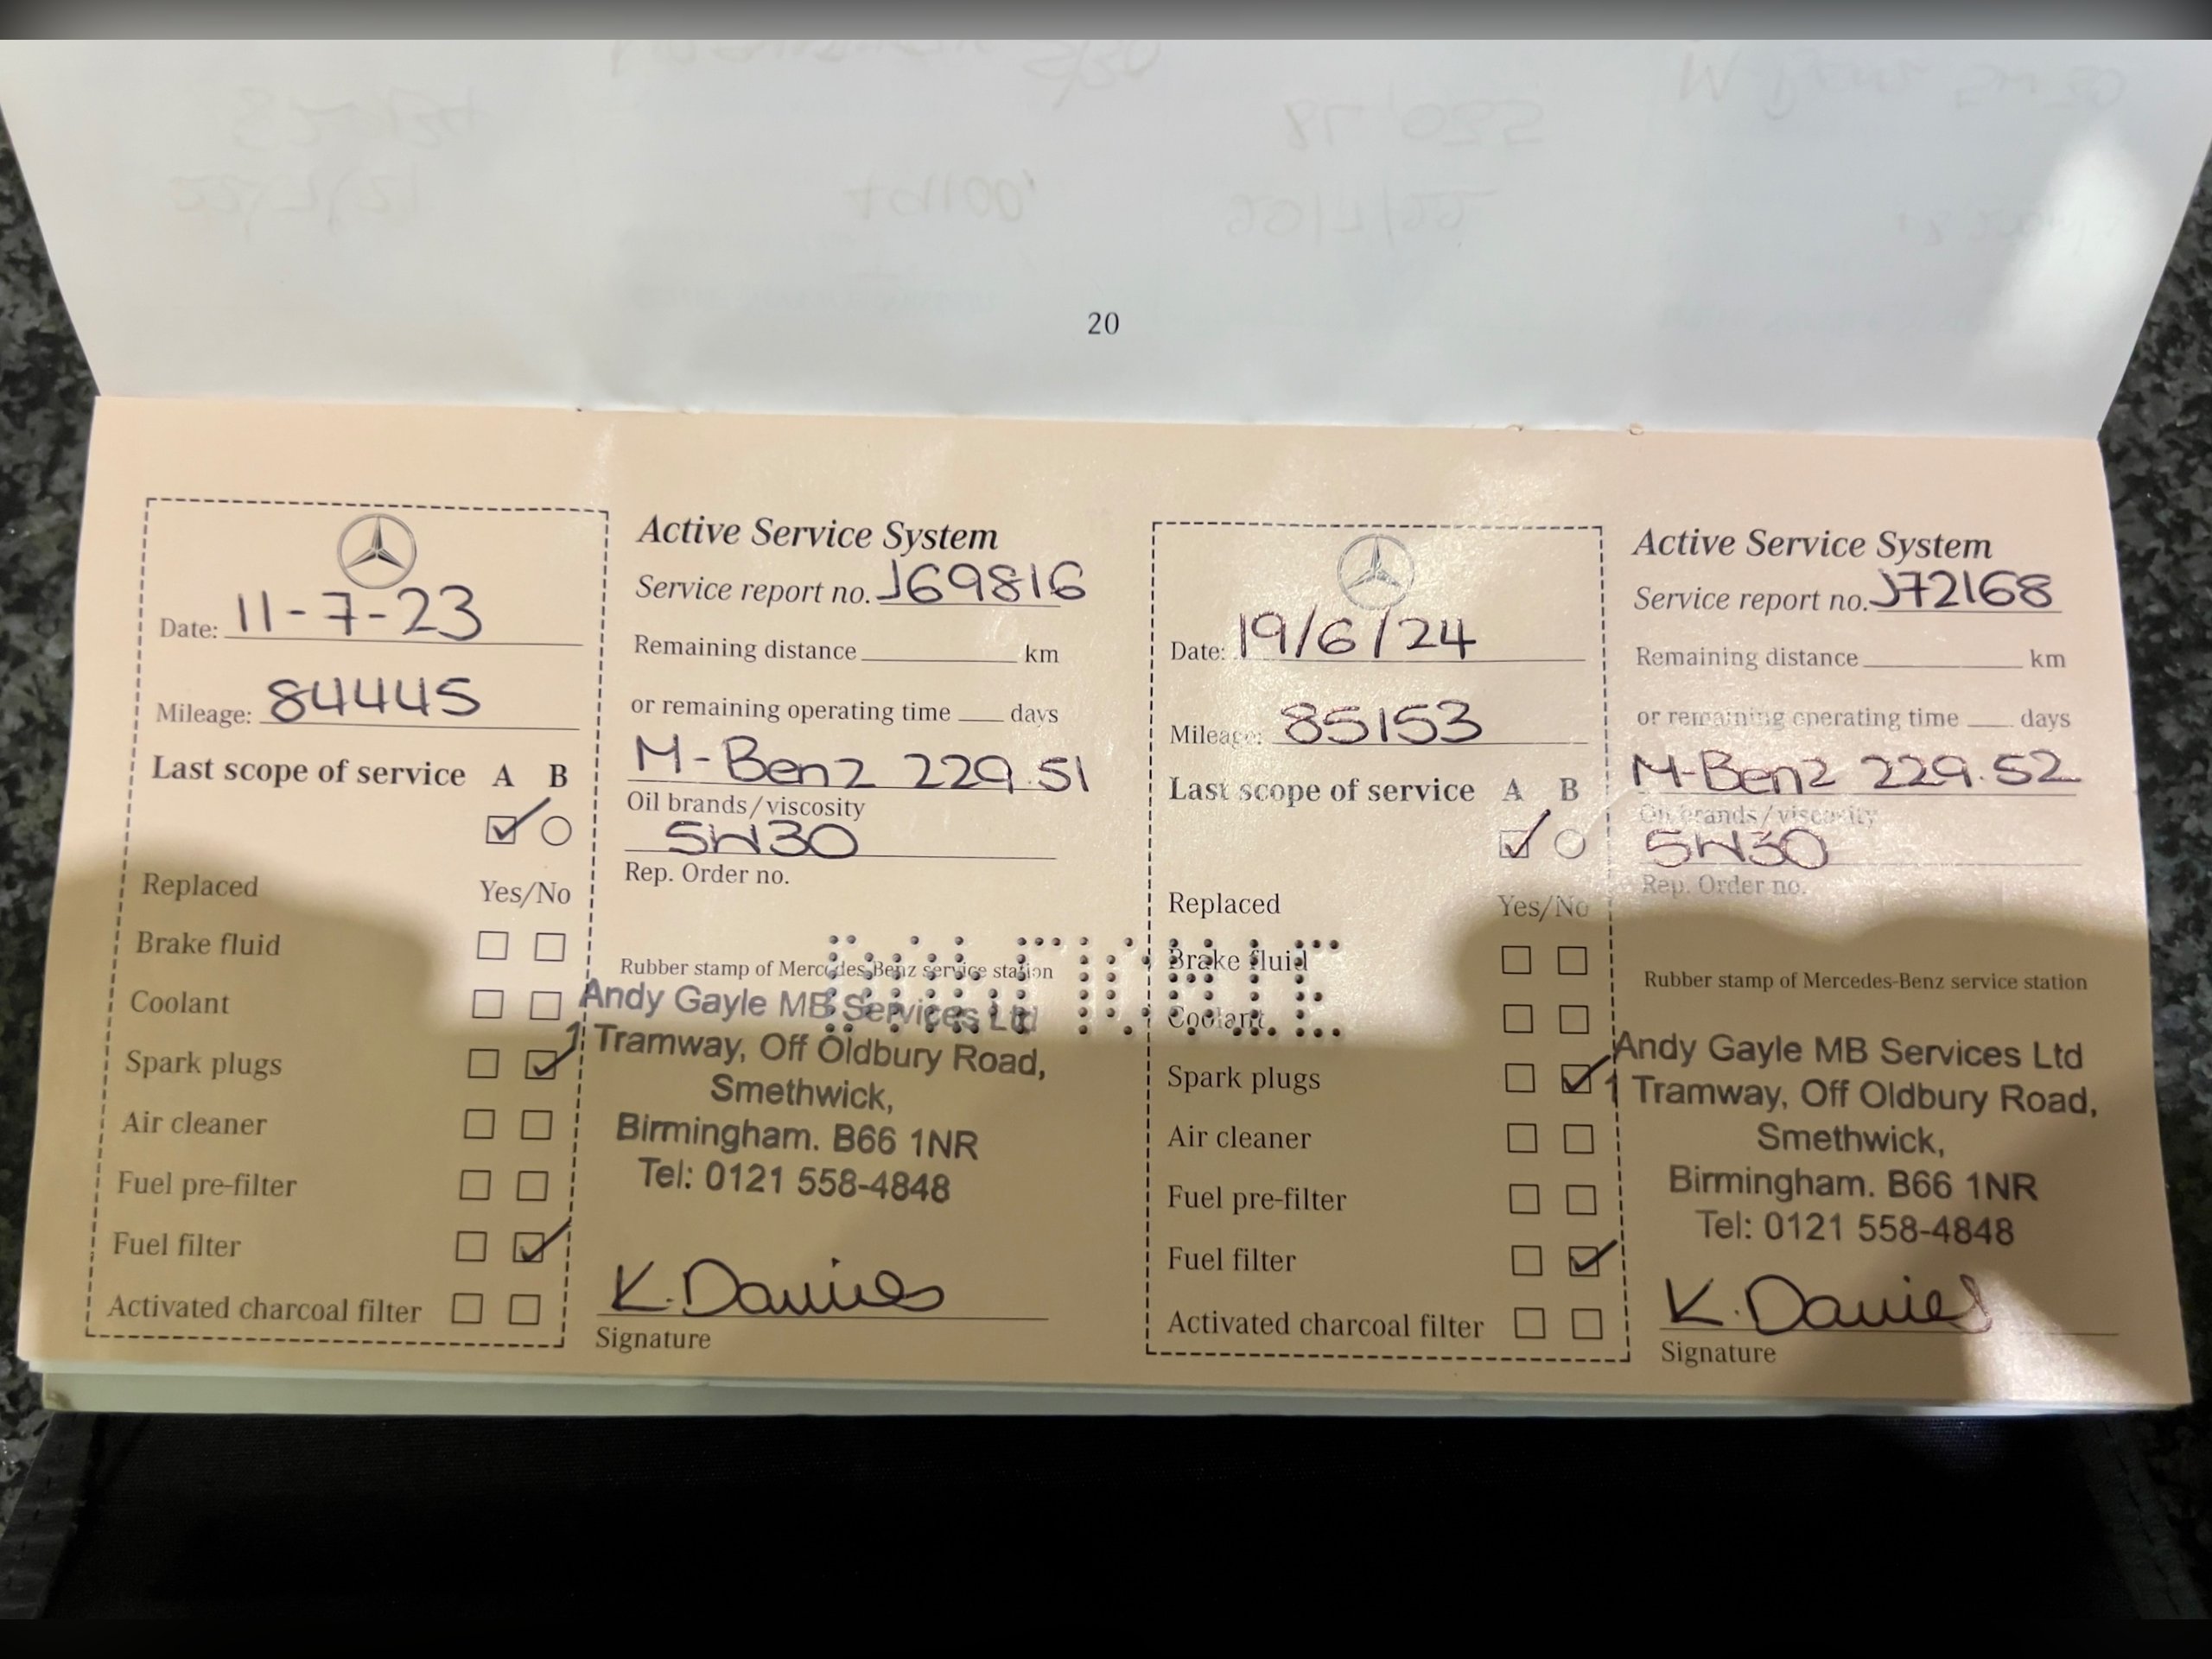 20
Date: 11-7-23
Mileage: 84445
Last scope of service A B
Replaced Yes/No
Brake fluid
Coolant
Spark plugs
Air cleaner
Fuel pre-filter
Fuel filter
Activated charcoal filter
Active Service System
Service report no. J69816
Remaining distance km
or remaining operating time days
M-Benz 229.51
Oil brands/viscosity
5W30
Rep. Order no.
Rubber stamp of Mercedes-Benz service station
Andy Gayle MB Services Ltd
1 Tramway, Off Oldbury Road,
Smethwick,
Birmingham. B66 1NR
Tel: 0121 558-4848
K. Davies
Signature
Date: 19/6/24
Mileage: 85153
Last scope of service A B
Replaced Yes/No
Brake fluid
Coolant
Spark plugs
Air cleaner
Fuel pre-filter
Fuel filter
Activated charcoal filter
Active Service System
Service report no. J72168
Remaining distance km
or remaining operating time days
M-Benz 229.52
Oil brands/viscosity
5W30
Rep. Order no.
Rubber stamp of Mercedes-Benz service station
Andy Gayle MB Services Ltd
1 Tramway, Off Oldbury Road,
Smethwick,
Birmingham. B66 1NR
Tel: 0121 558-4848
K. Davies
Signature